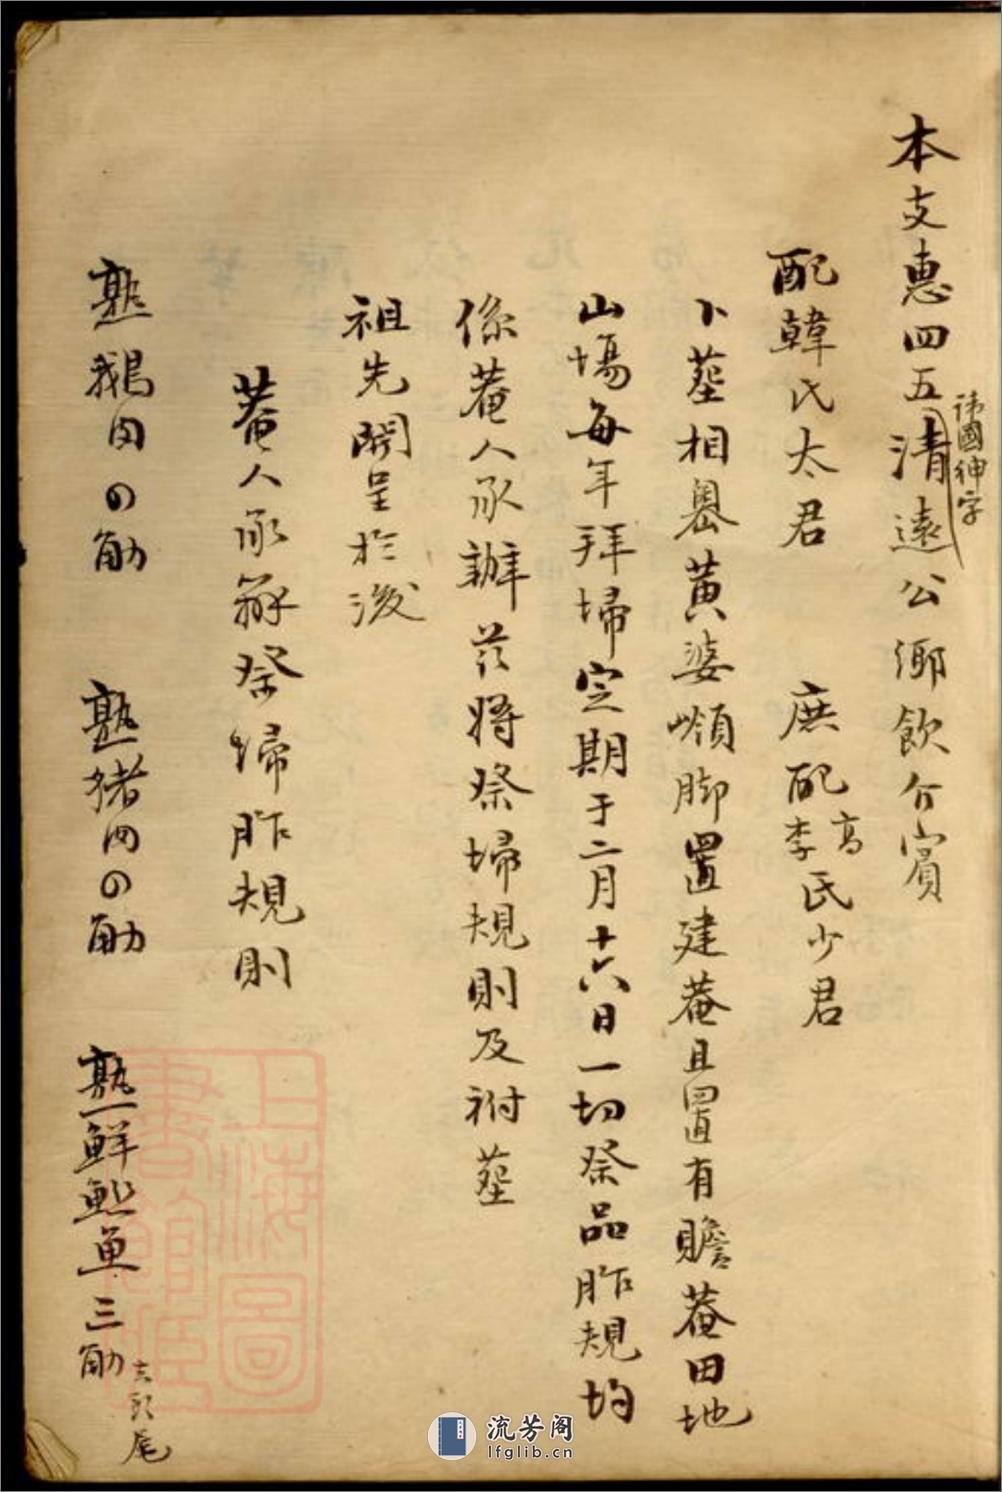 本支惠四五清遠公鄉飲介賓
諱國紳字
配韓氏太君 庶配高李氏少君
卜塟相嶴黃婆嶺脚置建菴且置有贍菴田地
山塲每年拜埽定期于二月十六日一切祭品胙規均
係菴人承辦茲將祭埽規則及祔塟
祖先開呈於後
菴人承辦祭埽胙規則
熟鵝肉の觔 熟猪肉の觔 熟鮮魚三觔
去頭尾
上海圖書館藏
流芳阁
lfglib.cn